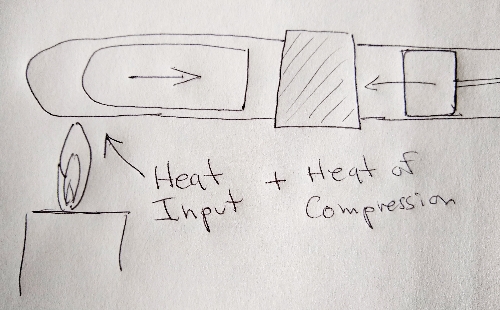 Heat + Heat of
Input Compression